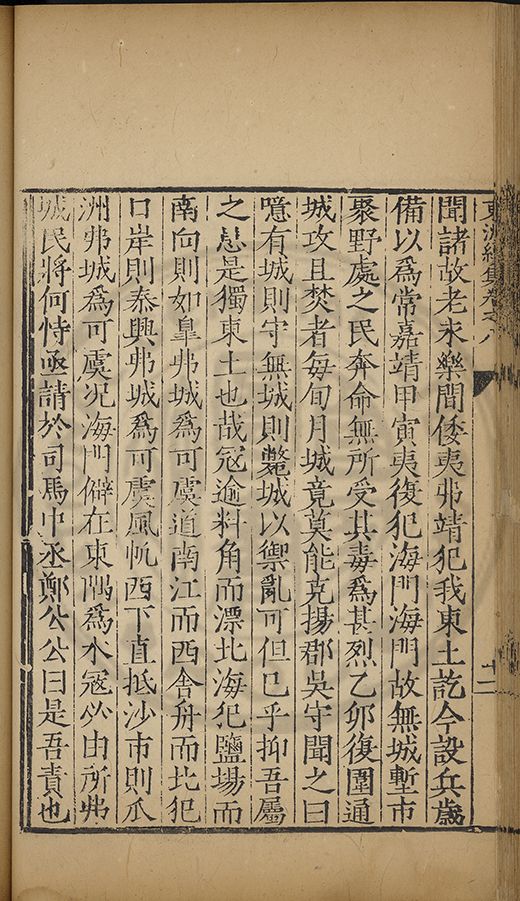 東洲續集卷之八
十二
聞諸故老永樂間倭夷弗靖犯我東土訖今設兵歲
備以爲常嘉靖甲寅夷復犯海門海門故無城塹市
聚野處之民奔命無所受其毒爲甚烈乙夘復圍通
城攻且焚者每旬月城竟莫能克揚郡吳守聞之曰
噫有城則守無城則斃城以禦亂可但已乎抑吾屬
之患是獨東土也哉寇逾料角而漂北海犯鹽場而
南向則如臯弗城爲可虞道南江而西舍舟而北犯
口岸則泰興弗城爲可虞風帆西下直抵沙市則瓜
洲弗城爲可虞况海門僻在東隅爲水寇必由所弗
城民將何恃亟請於司馬中丞鄭公公曰是吾責也